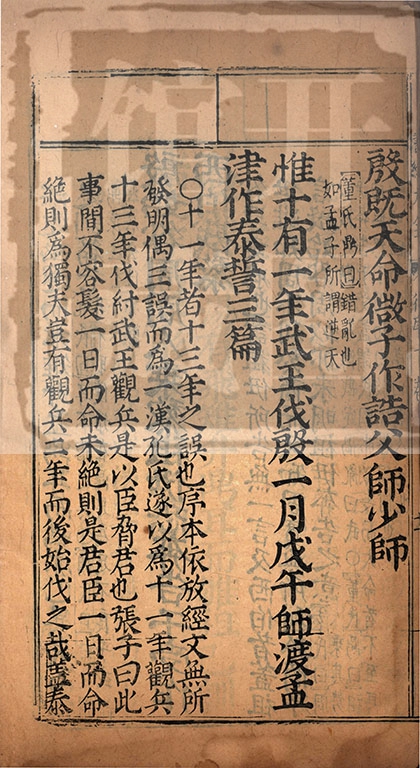 殷既天命微子作誥父師少師
董氏鼎曰錯亂也
如孟子所謂逆天
惟十有一年武王伐殷一月戊午師渡孟
津作泰誓三篇
○十一年者十三年之誤也序本依放經文無所
發明偶三誤而為一漢孔氏遂以為十一年觀兵
十三年伐紂武王觀兵是以臣脅君也張子曰此
事間不容髮一日而命未絕則是君臣一日而命
絕則為獨夫豈有觀兵二年而後始伐之哉蓋泰